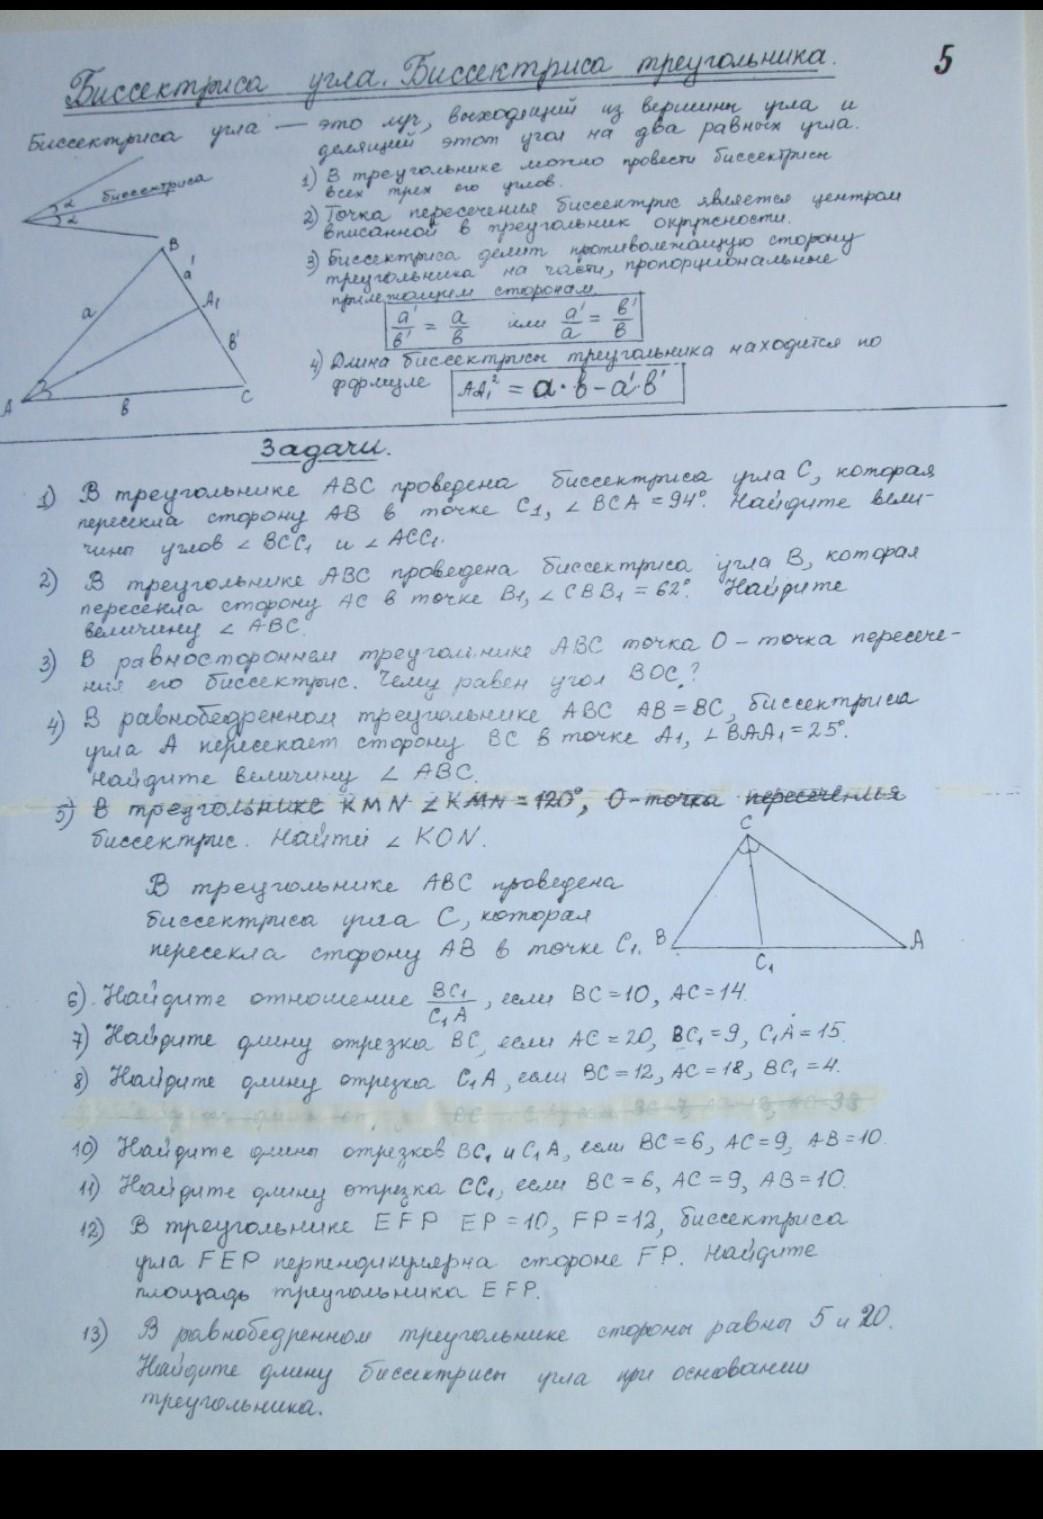 5
Биссектриса угла. Биссектриса треугольника.
Биссектриса угла — это луч, выходящий из вершины угла и
делящий этот угол на два равных угла.
биссектриса
α
α
1) В треугольнике можно провести биссектрисы
всех трех его углов.
2) Точка пересечения биссектрис является центром
вписанной в треугольник окружности.
3) Биссектриса делит противолежащую сторону
треугольника на части, пропорциональные
прилежащим сторонам.
a'/в' = a/в или a'/a = в'/в
4) Длина биссектрисы треугольника находится по
формуле AA₁² = a·в − a'·в'
B
a'
a
A₁
в'
A
в
C
Задачи.
1) В треугольнике ABC проведена биссектриса угла C, которая
пересекла сторону AB в точке C₁, ∠BCA = 94°. Найдите вели-
чины углов ∠BCC₁ и ∠ACC₁.
2) В треугольнике ABC проведена биссектриса угла B, которая
пересекла сторону AC в точке B₁, ∠CBB₁ = 62°. Найдите
величину ∠ABC.
3) В равностороннем треугольнике ABC точка O – точка пересече-
ния его биссектрис. Чему равен угол BOC?
4) В равнобедренном треугольнике ABC AB = BC, биссектриса
угла A пересекает сторону BC в точке A₁, ∠BAA₁ = 25°.
Найдите величину ∠ABC.
5) В треугольнике KMN ∠KMN = 120°, O-точка пересечения
биссектрис. Найти ∠KON.
В треугольнике ABC проведена
биссектриса угла C, которая
пересекла сторону AB в точке C₁.
C
B
A
C₁
6). Найдите отношение BC₁/C₁A, если BC = 10, AC = 14.
7) Найдите длину отрезка BC, если AC = 20, BC₁ = 9, C₁A = 15.
8) Найдите длину отрезка C₁A, если BC = 12, AC = 18, BC₁ = 4.
10) Найдите длины отрезков BC₁ и C₁A, если BC = 6, AC = 9, AB = 10.
11) Найдите длину отрезка CC₁, если BC = 6, AC = 9, AB = 10.
12) В треугольнике EFP EP = 10, FP = 12, биссектриса
угла FEP перпендикулярна стороне FP. Найдите
площадь треугольника EFP.
13) В равнобедренном треугольнике стороны равны 5 и 20.
Найдите длину биссектрисы угла при основании
треугольника.